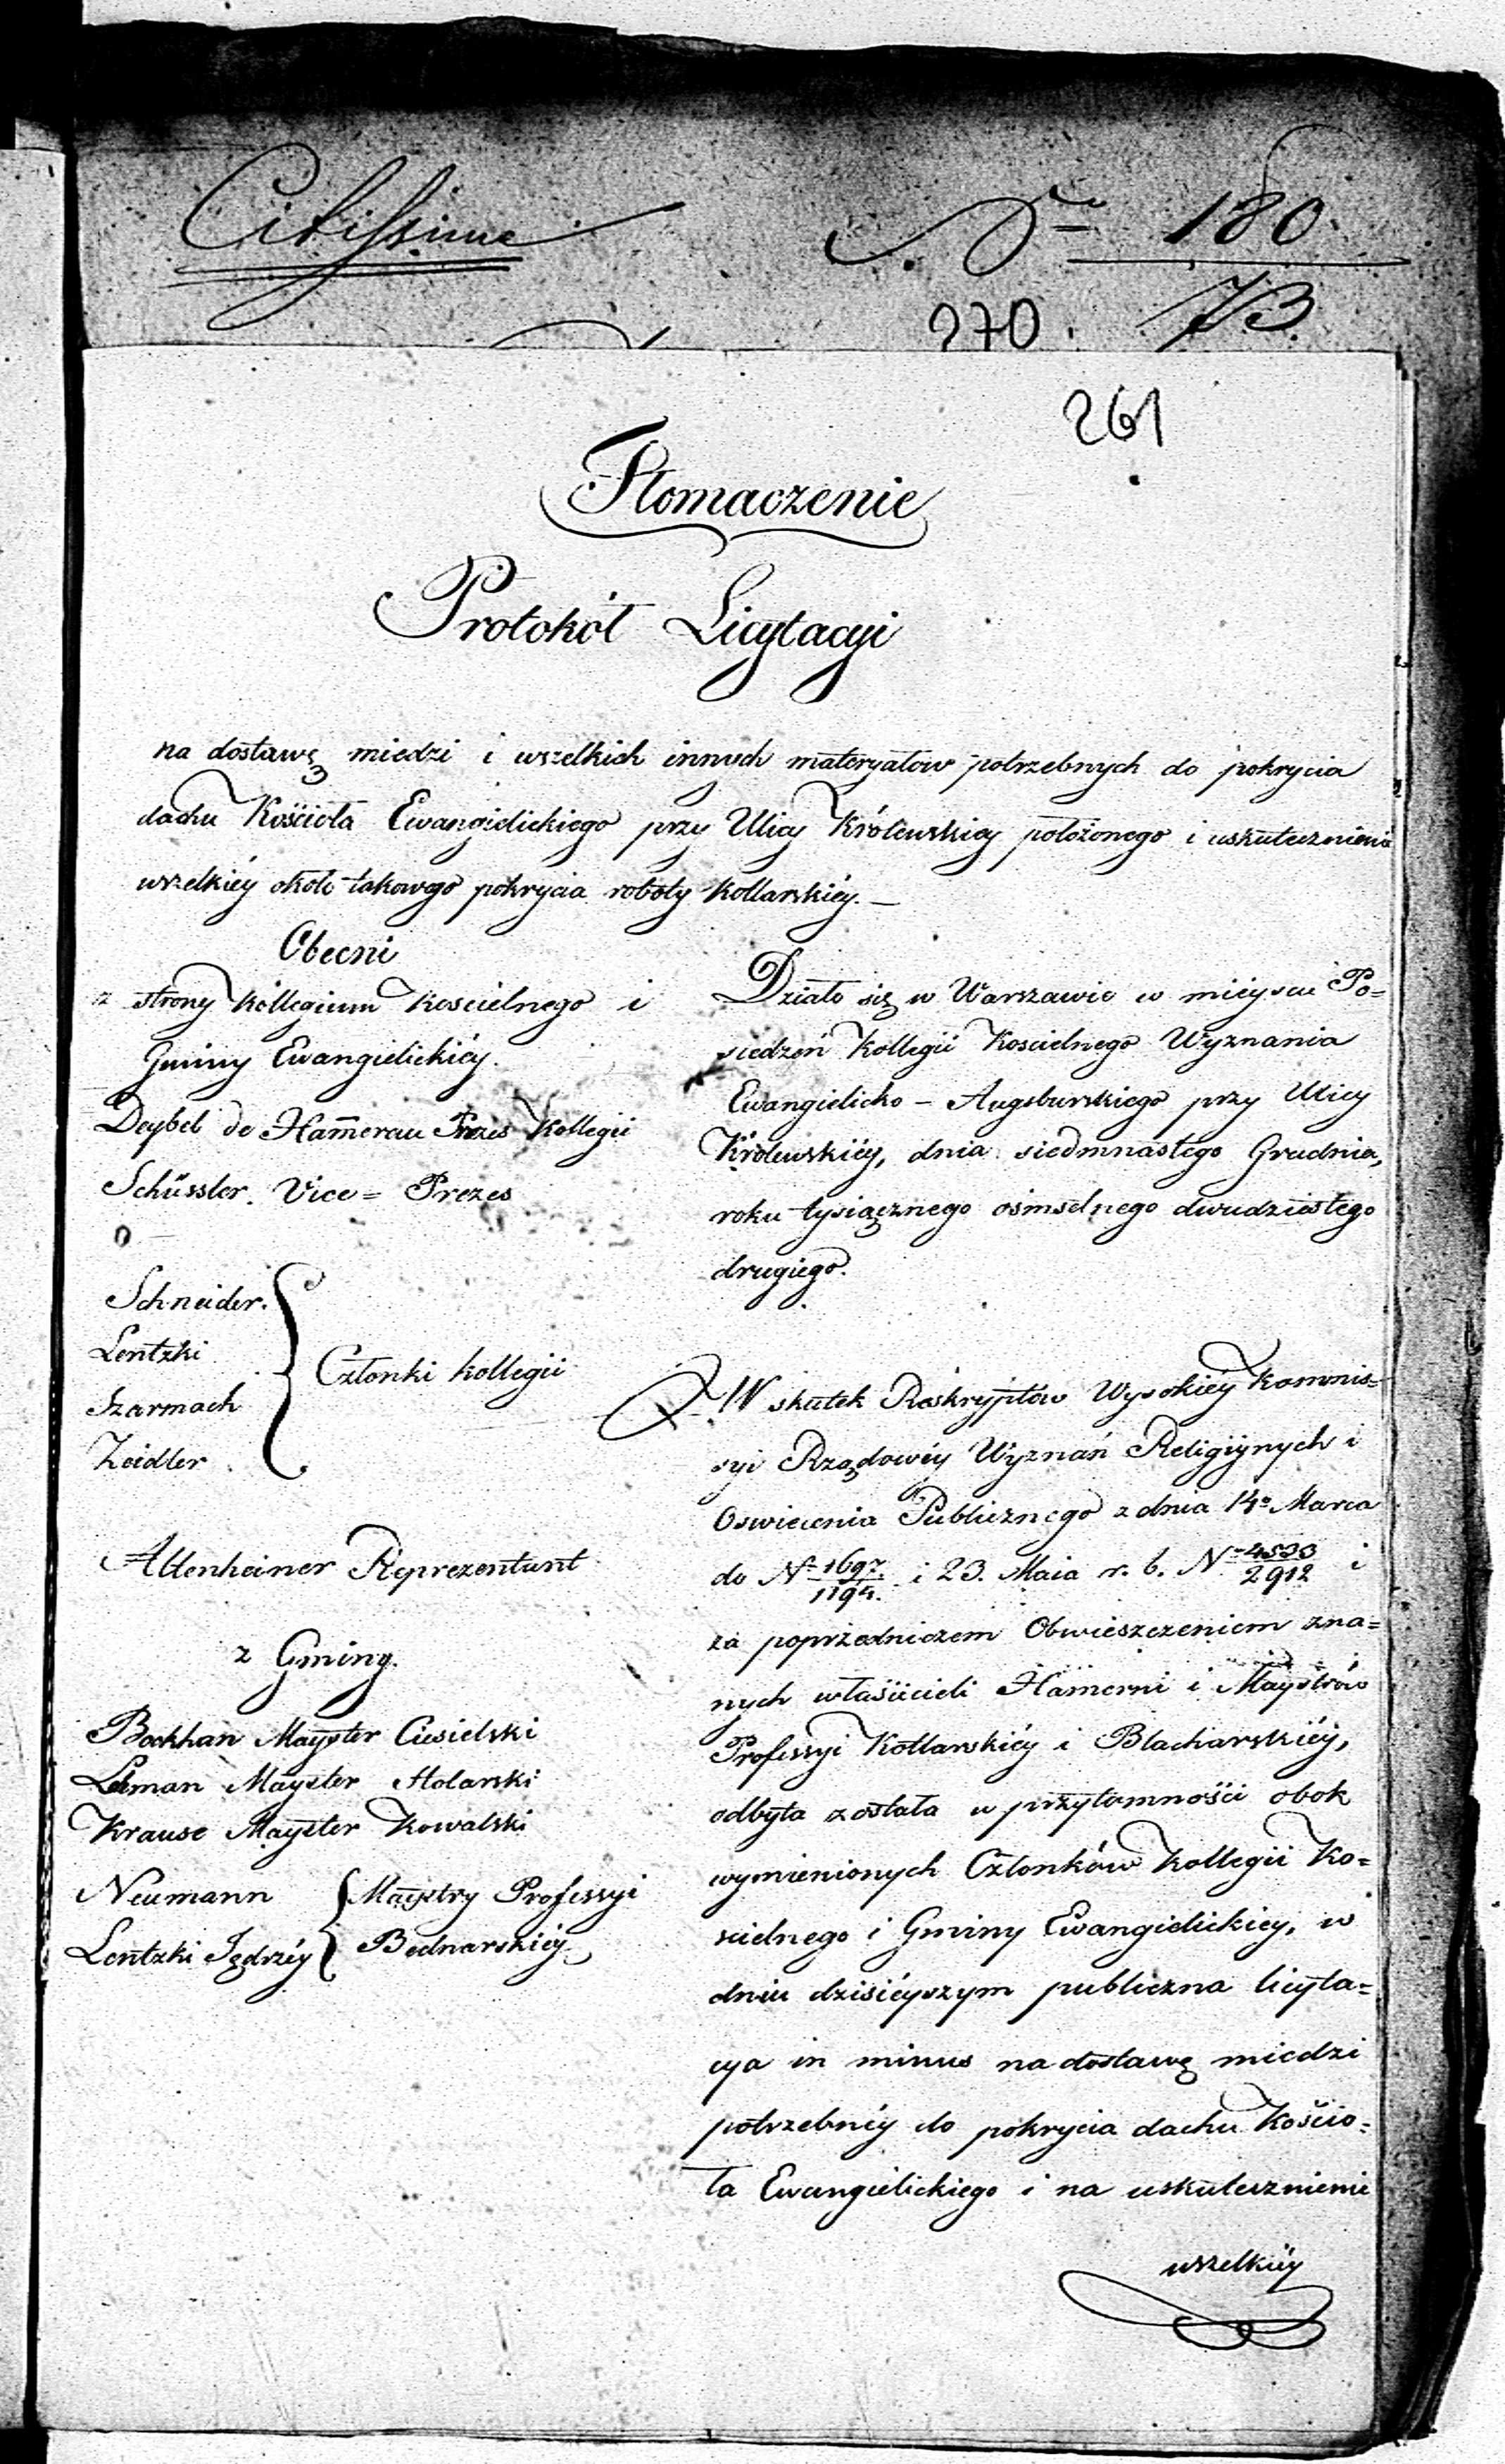 Citissime
No 180
270. 73.
261
Tłomaczenie
Protokół Licytacyi
na dostawę miedzi i wszelkich innych materyałow potrzebnych do pokrycia
dachu Kościoła Ewangielickiego przy Ulicy Królewskiey położonego i uskutecznienia
wszelkiéy około takowego pokrycia roboty kotlarskiéy. —
Obecni
z strony Kollegium Koscielnego i
Gminy Ewangielickiéy.
Deybel de Ham̄erau Prezes Kollegii
Schüssler. Vice = Prezes
Schneider.
Lentzki
Szarmach
Zeidler
Członki kollegii
Altenheiner Reprezentant
z Gminy.
Bockhan Mayster Ciesielski
Leman Mayster Stolarski
Krause Mayster Kowalski
Neumann
Lentzki Jędrzéy
Maystry Professyi
Bednarskiéy
Działo się w Warszawie w mieyscu Po=
siedzeń Kollegii Koscielnego Wyznania
Ewangielicko — Augsburskiego przy Ulicy
Królewskiéy, dnia siedmnastego Grudnia,
roku tysiącznego osmsetnego dwudziestego
drugiego.
W skutek Reskryptów Wysokiéy Kommis=
syi Rządowéy Wyznań Religijnych i
Oswiecenia Publicznego z dnia 14o Marca
do No 1697/1194. i 23. Maia r. b. No 4533/2912 i
za poprzedniczem Obwieszczeniem zna=
nych właścicieli Hamerni i Maystrów
Professyi Kotlarskiéy i Blacharskiéy,
odbyta została w przytomności obok
wymienionych Członków Kollegii Ko=
scielnego i Gminy Ewangielickiey, w
dniu dzisiéyszym publiczna licyta=
cya in minus na dostawę miedzi
potrzebnéy do pokrycia dachu Kościo=
ła Ewangielickiego i na uskutecznienie
wszelkiéy